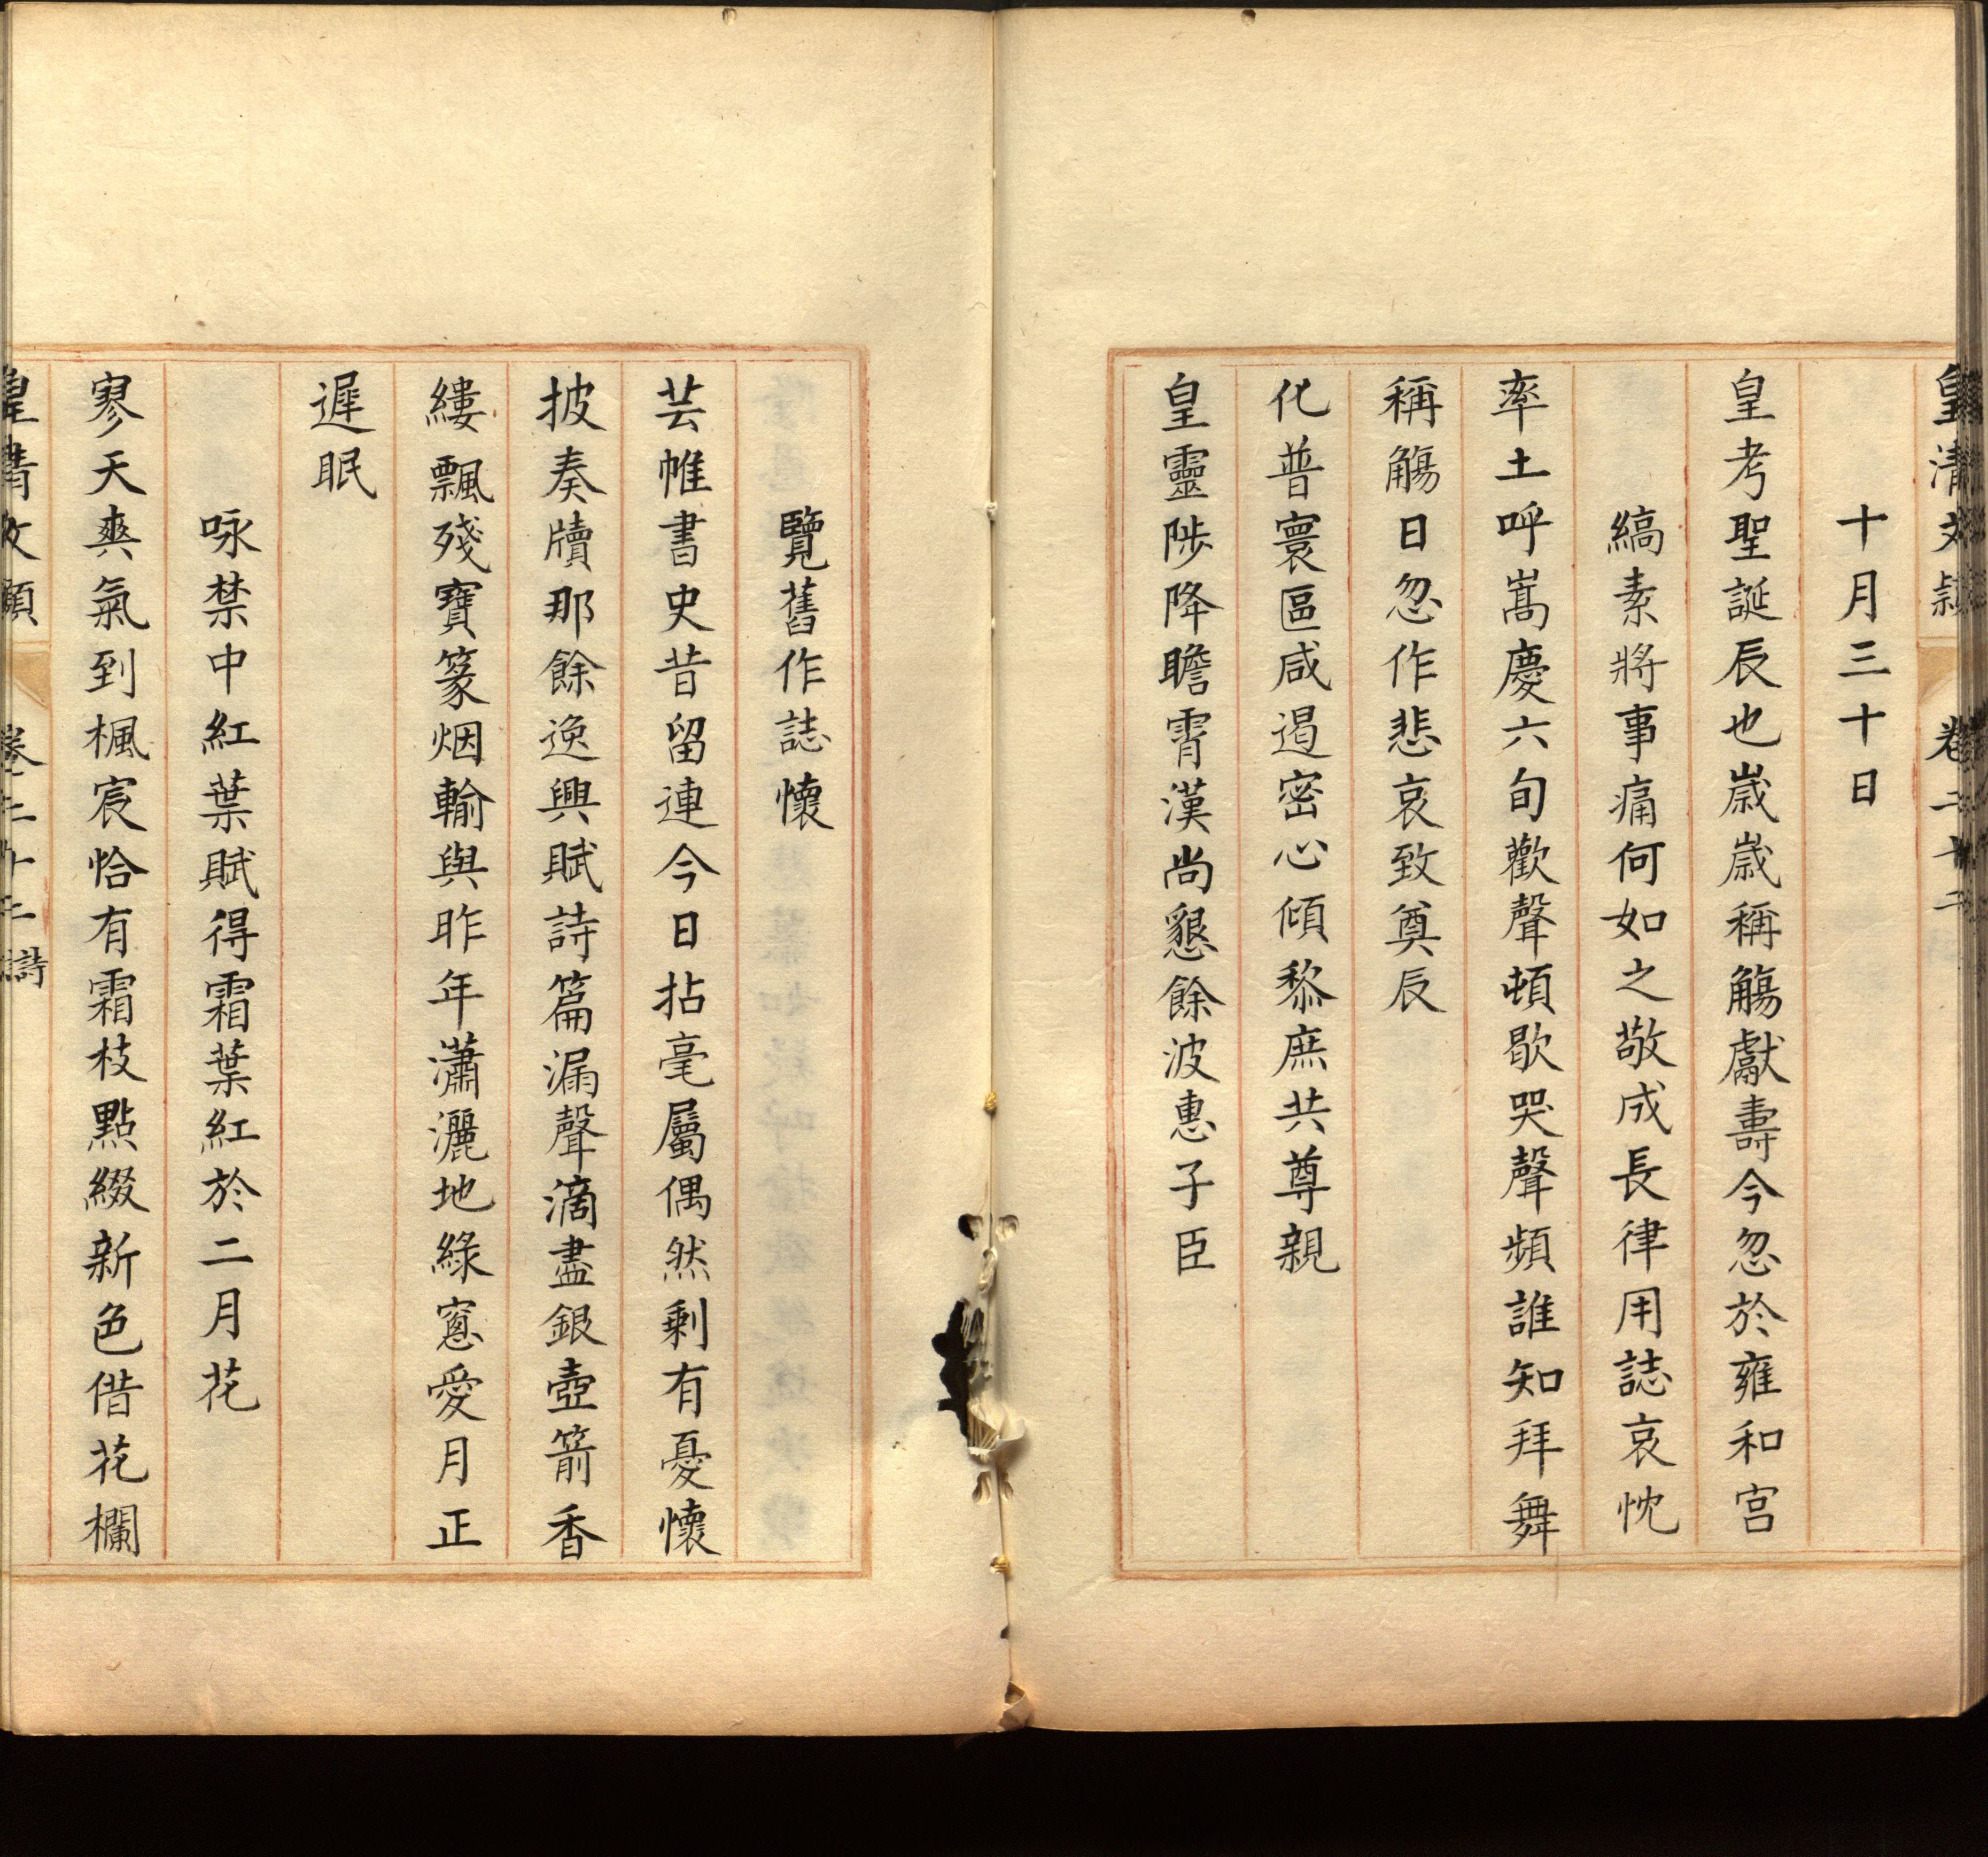 皇清文穎 卷二十二
十月三十日
皇考聖誕辰也歲歲稱觴獻壽今忽於雍和宮
縞素將事痛何如之敬成長律用誌哀忱
率土呼嵩慶六旬歡聲頓歇哭聲頻誰知拜舞
稱觴日忽作悲哀致奠辰
化普寰區咸遏密心傾黎庶共尊親
皇靈陟降瞻霄漢尚懇餘波惠子臣
覽舊作誌懷
芸帷書史昔留連今日拈毫屬偶然剩有憂懷
披奏牘那餘逸興賦詩篇漏聲滴盡銀壺箭香
縷飄殘寶篆烟輸與昨年瀟灑地綠窻愛月正
遲眠
咏禁中紅葉賦得霜葉紅於二月花
寥天爽氣到楓宸恰有霜枝點綴新色借花欄
皇清文穎 卷二十二 詩